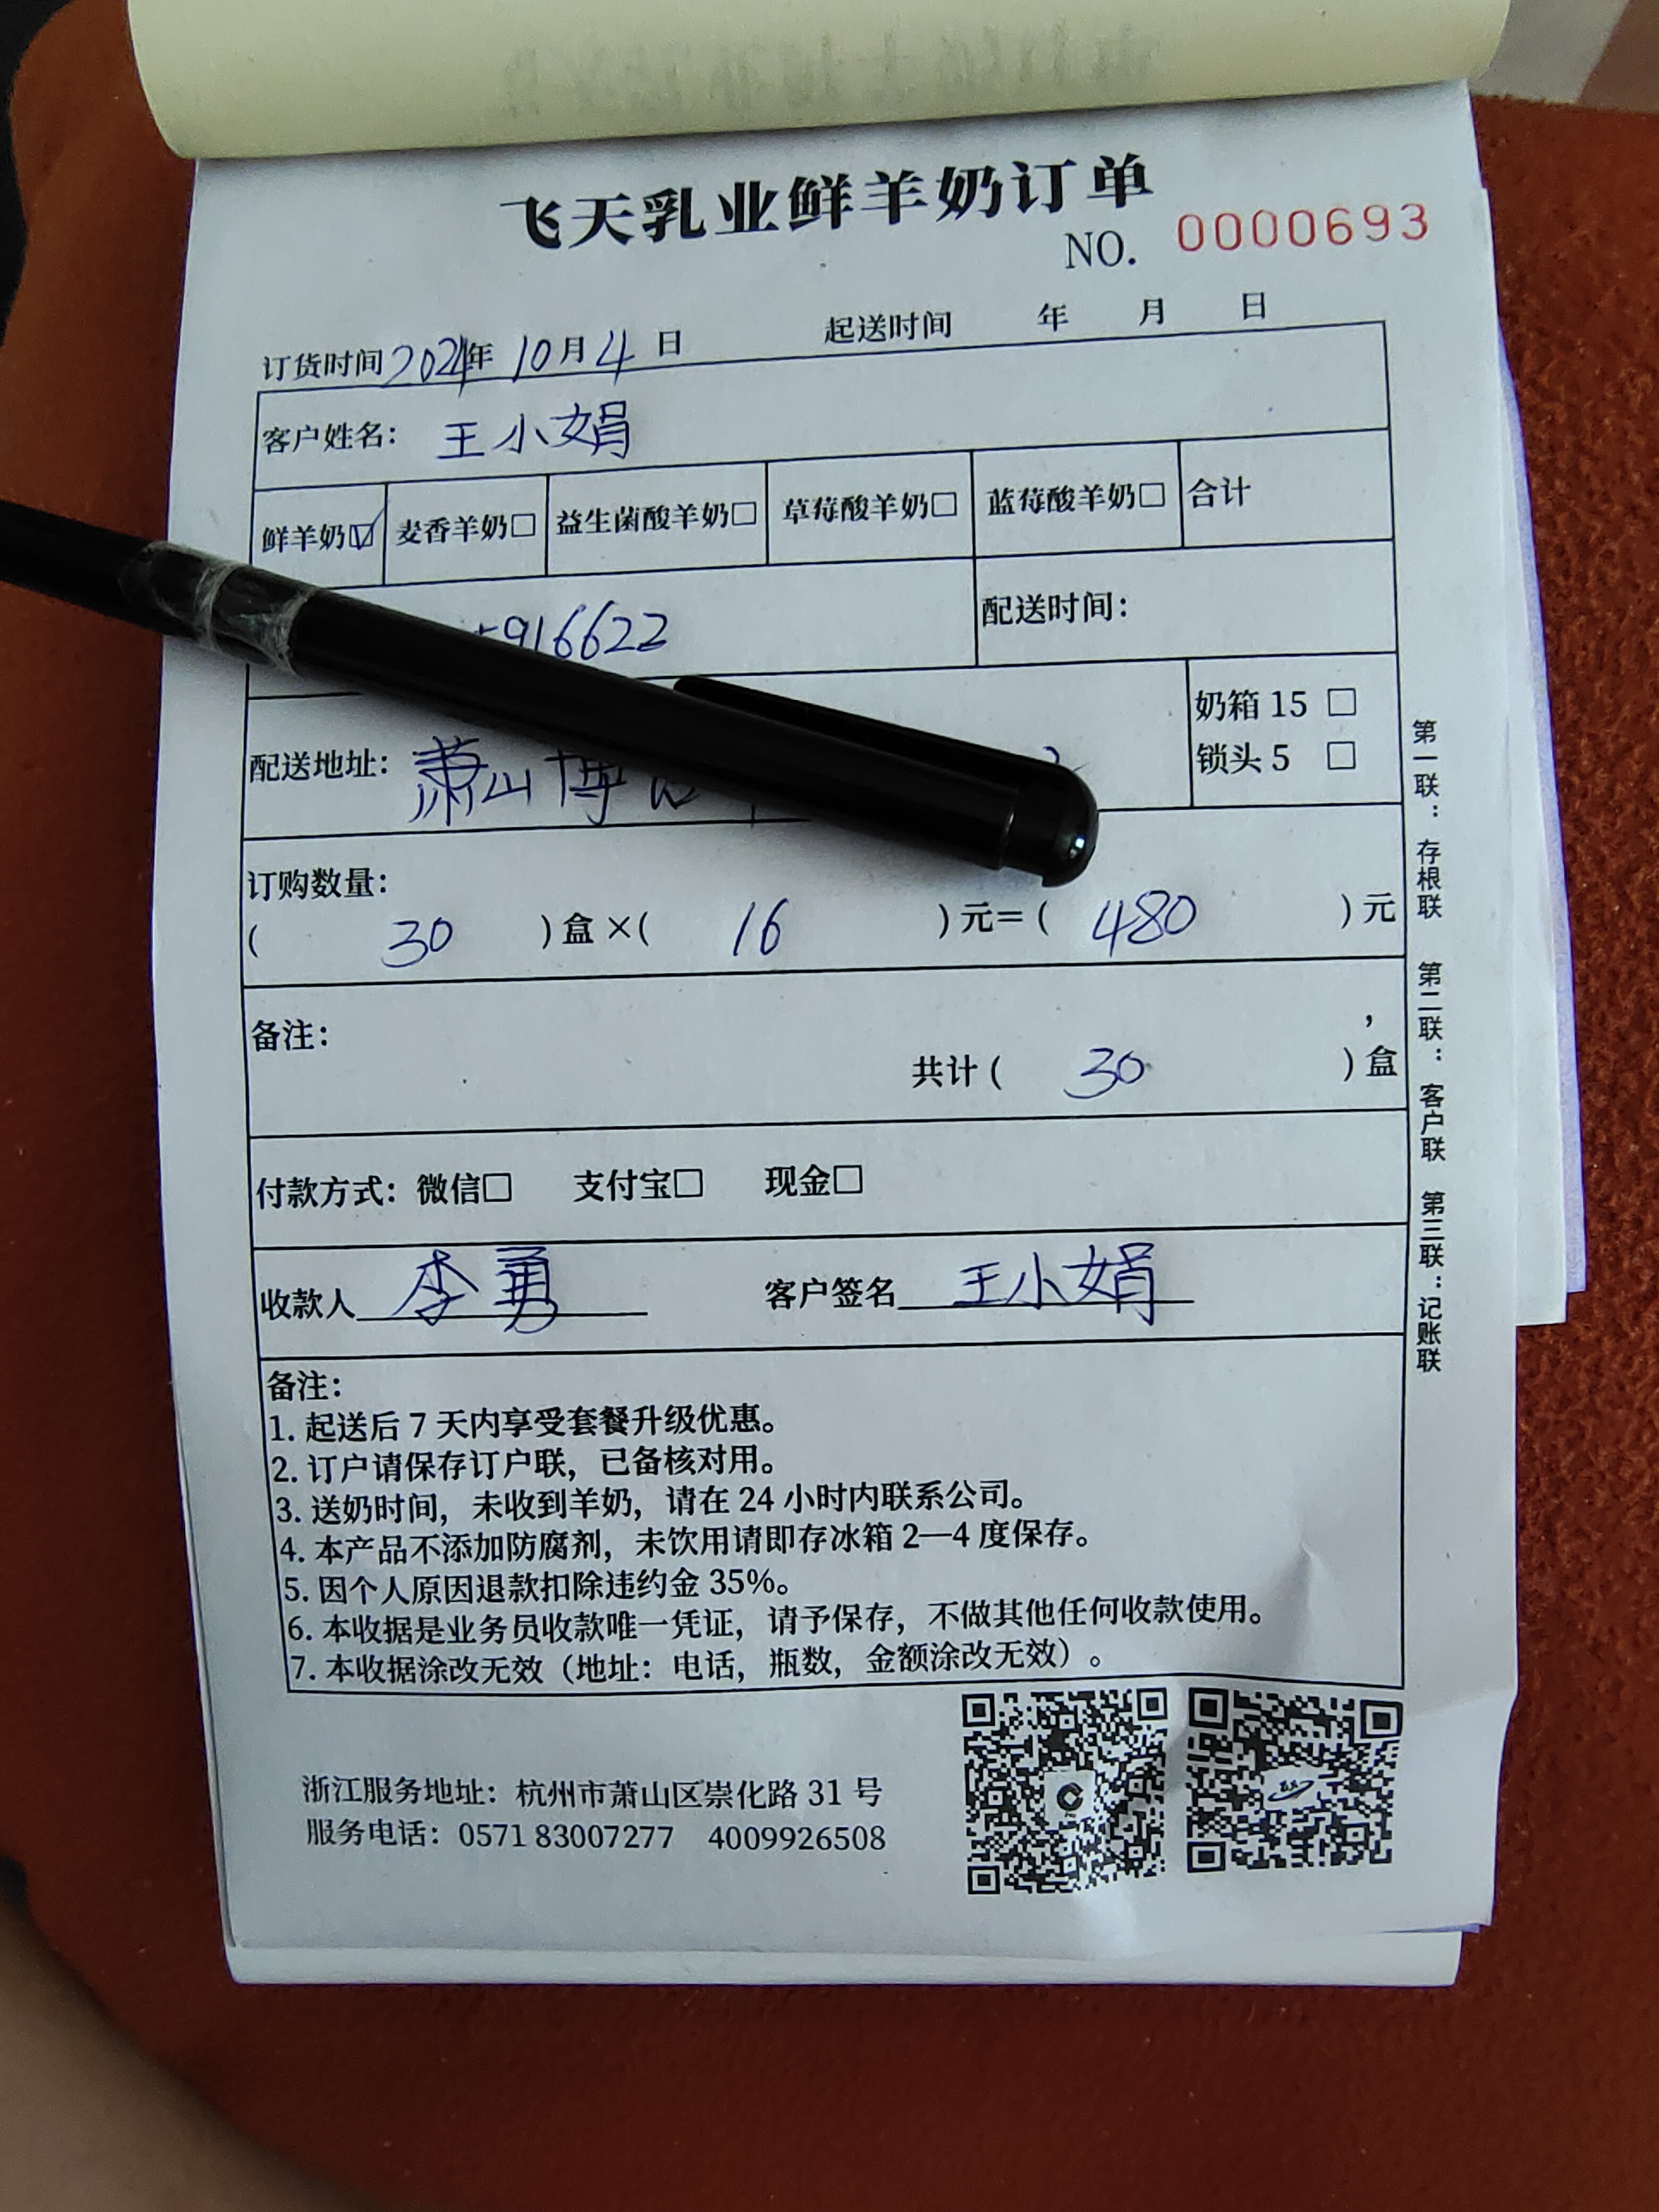 飞天乳业鲜羊奶订单
NO. 0000693
订货时间 2021年 10月 4 日 起送时间 年 月 日
客户姓名： 王小娟
鲜羊奶☑ 麦香羊奶□ 益生菌酸羊奶□ 草莓酸羊奶□ 蓝莓酸羊奶□ 合计
916622 配送时间：
配送地址： 萧山博
奶箱 15 □
锁头 5 □
订购数量：
( 30 ) 盒 ×( 16 ) 元＝( 480 ) 元
备注： ，
共计 ( 30 ) 盒
付款方式：微信□ 支付宝□ 现金□
收款人 李勇 客户签名 王小娟
备注：
1. 起送后 7 天内享受套餐升级优惠。
2. 订户请保存订户联，已备核对用。
3. 送奶时间，未收到羊奶，请在 24 小时内联系公司。
4. 本产品不添加防腐剂，未饮用请即存冰箱 2—4 度保存。
5. 因个人原因退款扣除违约金 35%。
6. 本收据是业务员收款唯一凭证，请予保存，不做其他任何收款使用。
7. 本收据涂改无效（地址：电话，瓶数，金额涂改无效）。
第一联：存根联 第二联：客户联 第三联：记账联
浙江服务地址：杭州市萧山区崇化路 31 号
服务电话：0571 83007277 4009926508